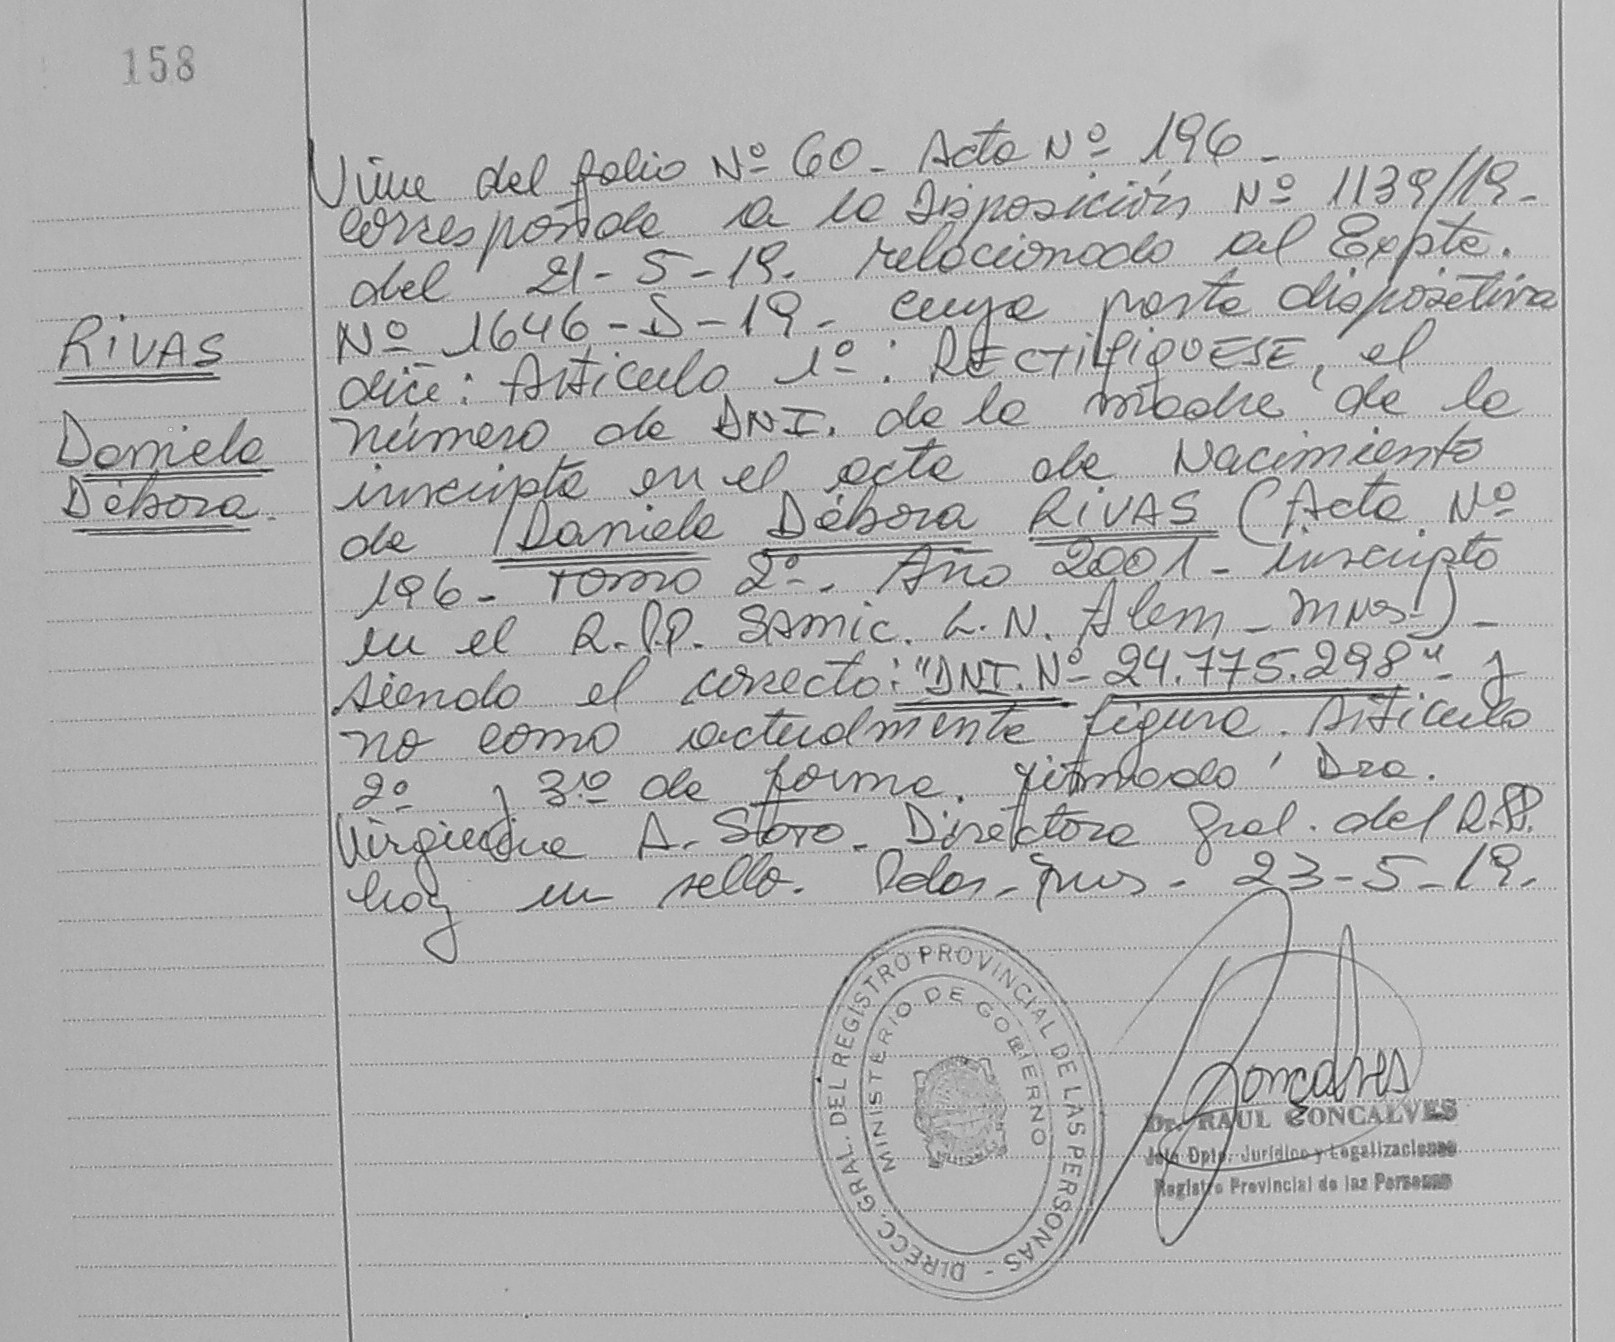 158
RIVAS
Daniela
Débora.
Viene del folio Nº 60 - Acta Nº 196 -
corresponde a la Disposición Nº 1139/19 -
del 21-5-19. relacionado al Expte.
Nº 1646-D-19 - cuya parte dispositiva
dice: Artículo 1º: RECTIFIQUESE, el
número de DNI. de la madre de la
inscripta en el acta de Nacimiento
de Daniela Débora RIVAS (Acta Nº
196 - Tomo 2º - Año 2001 - inscripto
en el R.P.P. SAMIC. L.N. Alem - Mnes -) -
siendo el correcto: "DNI. Nº 24.775.298" y
no como actualmente figura. Artículo
2º y 3º de forma. Firmado: Dra.
Virginia A. Soto - Directora Gral. del R.P.P.
hay un sello. Pdas - Mnes - 23-5-19.
DIRECC. GRAL. DEL REGISTRO PROVINCIAL DE LAS PERSONAS -
MINISTERIO DE GOBIERNO
Goncalves
Dr. RAUL GONCALVES
Jefe Dpto. Jurídico y Legalizaciones
Registro Provincial de las Personas